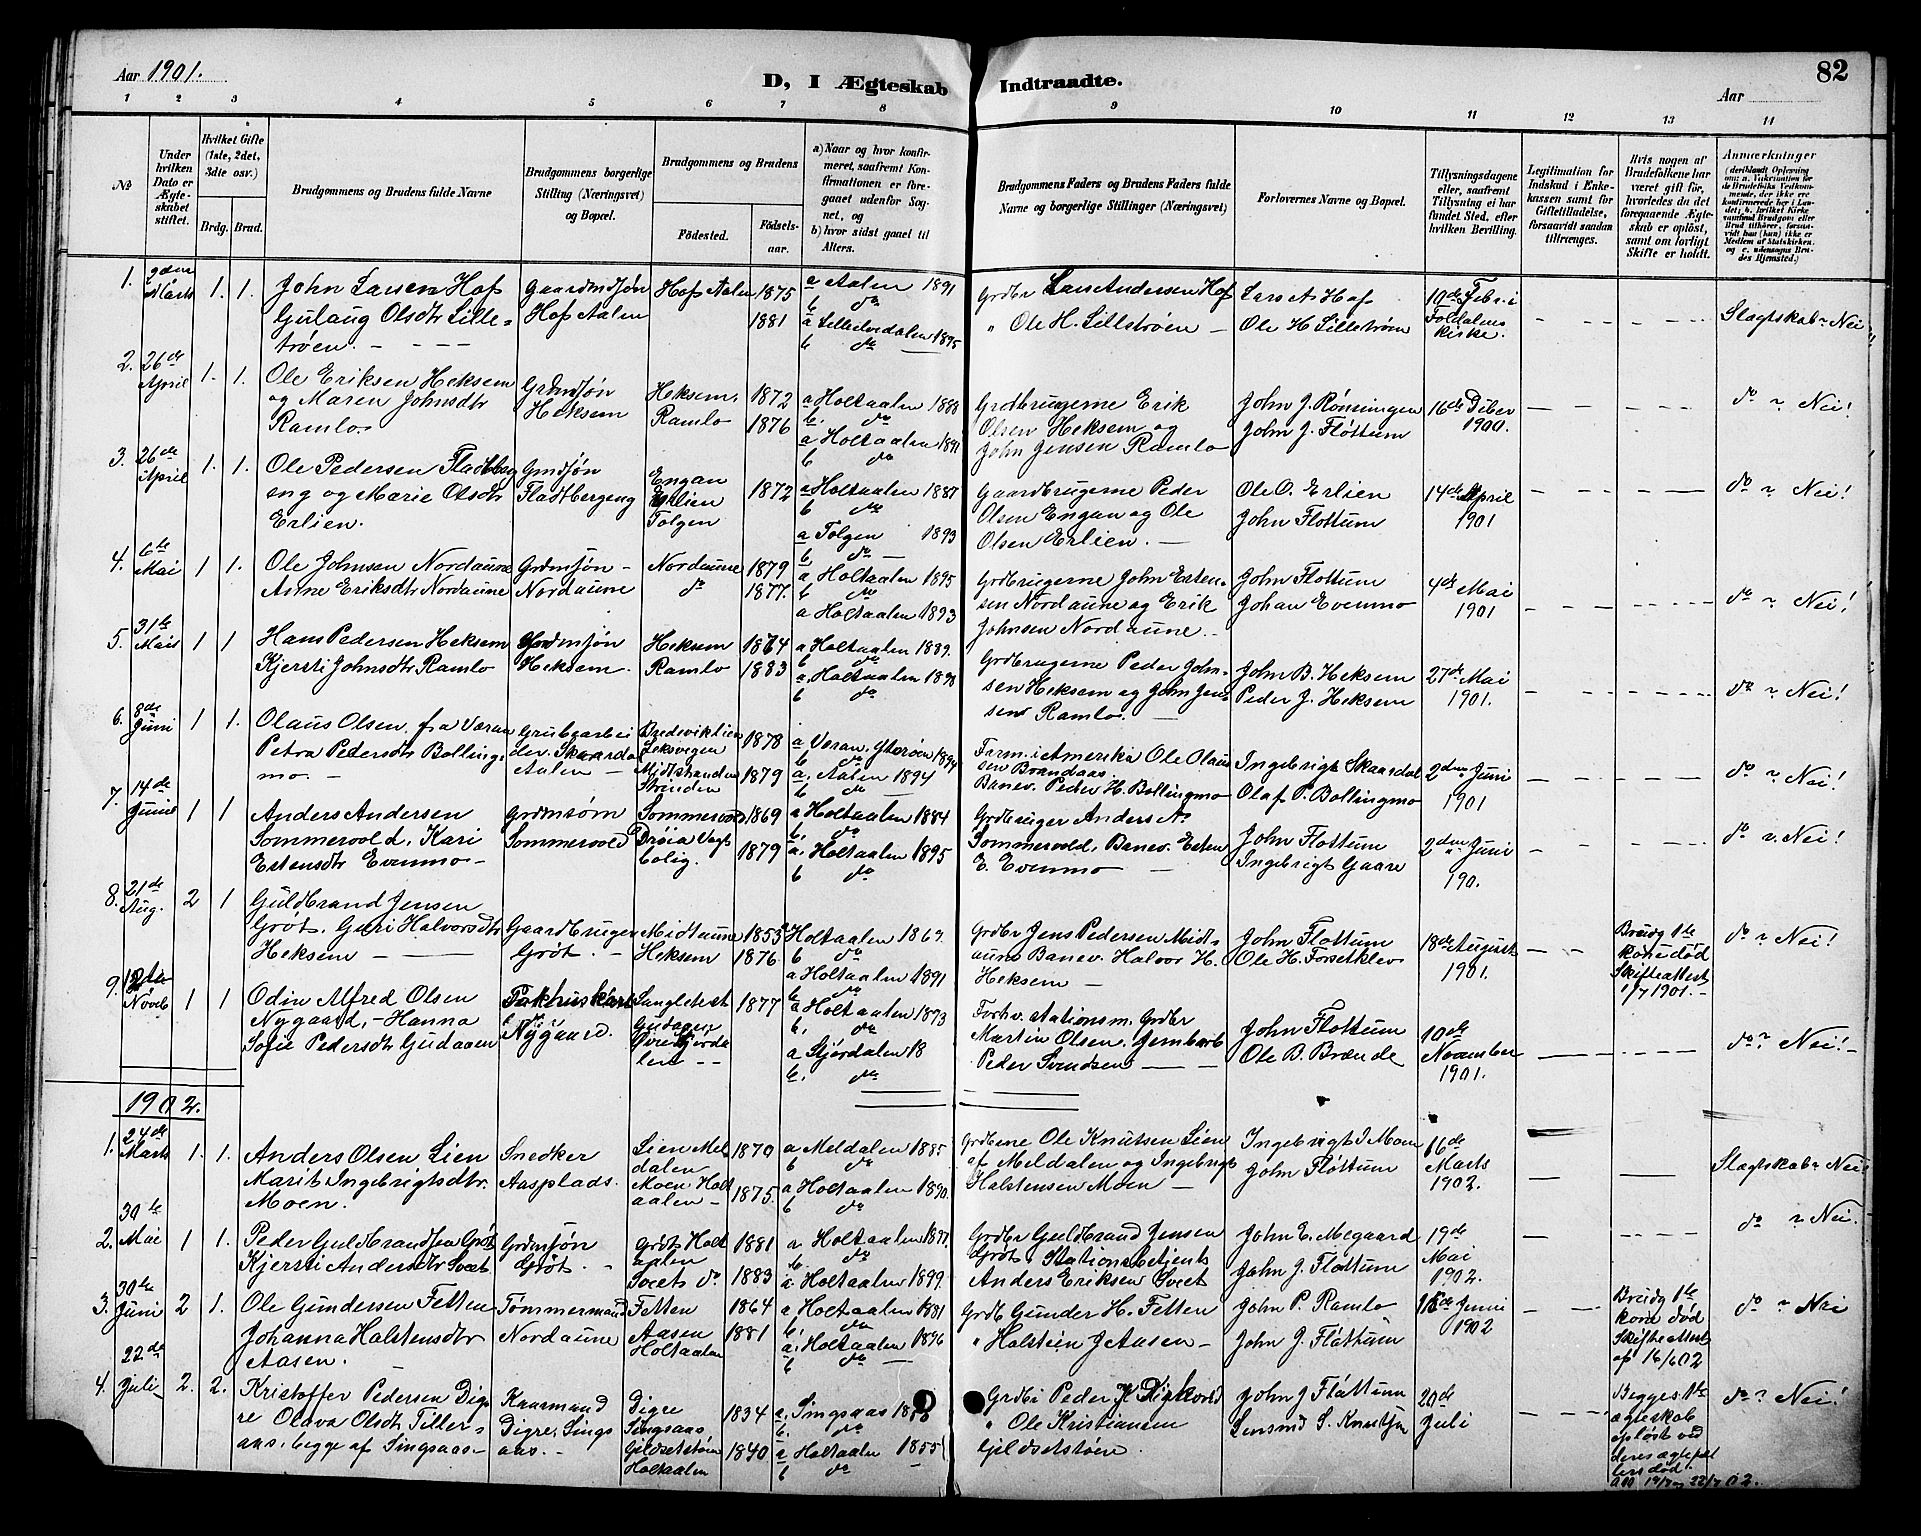 Aar 1901.
D, I Ægteskab Indtraadte.
Aar
82
1 2 3 4 5 6 7 8 9 10 11 12 13 14
No
Under hvilken Dato er Ægteskabet stiftet.
Hvilket Gifte (1ste, 2det, 3die osv.)
Brdg. Brud.
Brudgommens og Brudens fulde Navne
Brudgommens borgerlige Stilling (Næringsvei) og Bopæl.
Brudgommens og Brudens
Fødested. Fødselsaar.
a) Naar og hvor konfirmeret, saafremt Konfirmationen er foregaaet udenfor Sognet, og
b) hvor sidst gaaet til Alters.
Brudgommens Faders og Brudens Faders fulde Navne og borgerlige Stillinger (Næringsvei)
Forlovernes Navne og Bopæl.
Tillysningsdagene eller, saafremt Tillysning ei har fundet Sted, efter hvilken Bevilling.
Legitimation for Indskud i Enkekassen samt for Giftetilladelse, forsaavidt saadan tiltrænges.
Hvis nogen af Brudefolkene har været gift før, hvorledes da det foregaaende Ægteskab er opløst, samt om lovligt Skifte er holdt.
Anmærkninger
1. 2den Marts 1. 1. John Larsen Hof Gulaug Olsdtr Lillestrøen. Gaardmdsøn Hof Aalen Hof Aalen 1875 1881 a Aalen 1891 b do a Lilleelvedalen 1895 b do Grdbr Lars Andersen Hof " Ole H. Lillstrøen Lars A Hof Ole H Lillstrøm 10de Febr. i Foldalens kirke. Slagtskab? Nei
2. 26de April 1. 1. Ole Eriksen Heksem og Maren Johnsdtr Ramlo Grdmdsøn Heksem Heksem. Ramlo 1872 1876 a Holtaalen 1888 b. do a Holtaalen 1891 b do Grdbrugerne Erik Olsen Heksem og John Jensen Ramlo John J. Rønningen John J. Fløttum 16de Dcber 1900. do ? Nei!
3. 26de April 1. 1. Ole Pedersen Fladbergeng og Marie Olsdtr Erlien. Grmdsøn Fladbergeng Engan Erlien Tolgen 1872 a Holtaalen 1887 b do a Tolgen 1893 b do Gaardbrugerne Peder Olsen Engan og Ole Olsen Erlien. Ole O. Erlien John Flottum 14de April 1901 do ? Nei!
4. 6te Mai 1 1. Ole Johnsen Nordaune Anne Eriksdtr Nordaune Grdmsjøn Nordaune Nordaune do 1879 1877. a Holtaalen 1895 b do a Holtaalen 1893 Grdbrugerne John Estensen Nordaune og Erik Johnsen Nordaune. John Flottum Johan Evenmo 4de Mai 1901 do ? Nei!
5. 31te Mai 1 1 Hans Pedersen Heksem Kjersti Johnsdtr Ramlo Grdmsjøn Heksem. Heksem Ramlo 1874 1883 a Holtaalen 1889. b do a. Holtaalen 1898 b do Grdbrugerne Peder Johnsen Heksem og John Jensen Ramlo. John B. Heksem Peder J. Heksem 27de Mai 1901. do ? Nei!
6. 8de Juni 1 1. Olaus Olsen, fra Væran Petra Pedersdtr Bollingmo. Grubearbeider. Skaardal Aalen Bredeviktien Leksvigen Midtsanden Strinden 1878 1879 a Væran, Ytterøen 1894 b do a. Aalen 1894 b do Farm. i Amerika Ole Olausen Brandaas Banev. Peder H. Bollingmo Ingebrigt Skaardal Olaf P. Bollingmo 2den Juni 1901 do ? Nei!
7. 14de Juni 1 1 Anders Andersen Sommervold, Kari Estensdtr Evenmo Grdmsøn Sommervold Sommervold Drøia Vogtbolig. 1869 1879 a Holtaalen 1884 b. do a. Holtaalen 1895 b do Grdbruger Anders A. Sommervold. Banev. Esten E. Evenmo John Flottum Ingebrigt Gaare 2den Juni 190. do ? Nei!
8. 21de Aug. 2 1 Guldbrand Jensen Grøt. Guri Halvorsdtr Heksem Gaardbruger Grøt. Midtaune Heksem 1853 1876 Holtaalen 1869. b do a Holtaalen 1891 b do Grdbr Jens Pedersen Midtaune Banev. Halvor H. Heksem John Flottum Ole H. Forsetklev 18de August 1901. Breidg 1te kone død Skifteattest 1/7 1901. do ? Nei!
9. Novb 1 1 Odin Alfred Olsen Nygaard, Hanna Sofie Pedersdtr Gudaaen Pakhuskarl Nygaard. 1877 a Holtaalen 1893 b. do a Stjørdalen 18 b. do Forhv. stationsm. Grdbr Martin Olsen. Jernbarb Peder Svendsen John Flottum Ole B. Brænde 10de November 1901. do ? Nei!
1902.
1. 24de Marts 1. 1. Anders Olsen Lien Marit Ingebrigtsdtr. Moen. Snedker Aasplads. Lien Meldalen Moen Holtaalen 1870 1875. a Meldalen 1885 b do a Holtaalen 1890. b do Grdbrne Ole Knutsen Lien af Meldalen og Ingebrigt Halstensen Moen Ingebrigt J Moen John Fløttum 16de Marts 1902. Slagtskab? Nei
2. 30te Mai 1 1. Peder Guldbrandsen Grøt Kjersti Andersdtr Svæt Grdmsjøn Grøt. Grøt Holtaalen Svæts do 1881 1883 a Holtaalen 1897. b. do a Holtaalen 1899. Grdbr Guldbrand Jensen Grøt. Stationsbetjent Anders Eriksen Svæt John E. Megaard John J. Fløttum 19de Mai 1902. do ? Nei.
3. 30te Juni 2 1. Ole Gundersen Fetten Johanna Halstensdtr Aasen. Tømmermand Nordaune Fetten Aasen Holtaalen 1864 1881 a. Holtaalen 1881 b. do a. Holtaalen 1896 b do Grdb Gunder H. Fetten " Halstein J Aasen John P. Ramlo John J. Fløttum Juni 1902 Breidg 1te kone død Skifteattest af 16/6 02 do ? Nei
4. 22de Juli 2. 2. Kristoffer Pedersen Digre Olava Olsdtr Tilleraas, begge af Singsaas Kaarmand Digre, Singsaas. Digre Singsaas Gildsetstøen Holtaalen 1834 1840 a. Singsaas b. do a Holtaalen 1855 b do Grdbr Peder " Ole Kristiansen Gildsetstøen. John J Fløttum Lensmd S. Knutsjn 20de Juli Begges 1te ægteskab opløst ved deres ægtefællers død. do ? Nei!